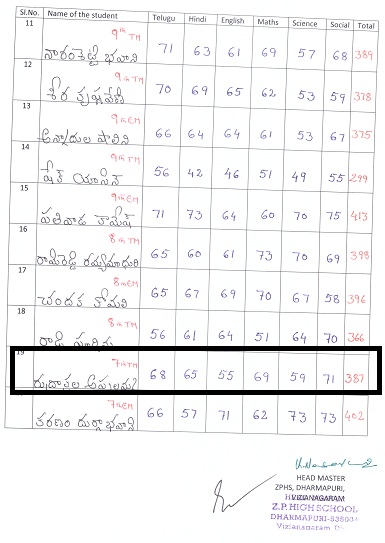 Sl.No. Name of the student Telugu Hindi English Maths Science Social Total
11 9th TM
నారంశెట్టి భవాని 71 63 61 69 57 68 389
12 9th TM
70 69 65 62 53 59 378
13 9th EM
షాలిని 66 64 64 61 53 67 375
14 9th TM
షేక్ యాసిన్ 56 42 46 51 49 55 299
15 9th EM
పతివాడ రామేష్ 71 73 64 60 70 75 413
16 8th TM
రామిరెడ్డి రమ్యమాధురి 65 60 61 73 70 69 398
17 8th EM
చందక కోమలి 65 67 69 70 67 58 396
18 8th TM
56 61 64 51 64 70 366
19 7th TM
68 65 55 69 59 71 387
7th EM
వరణం దుర్గాభవాని 66 57 71 62 73 73 402
HEAD MASTER
ZPHS, DHARMAPURI,
VIZIANAGARAM
Z.P. HIGH SCHOOL
DHARMAPURI-53500
Vizianagaram